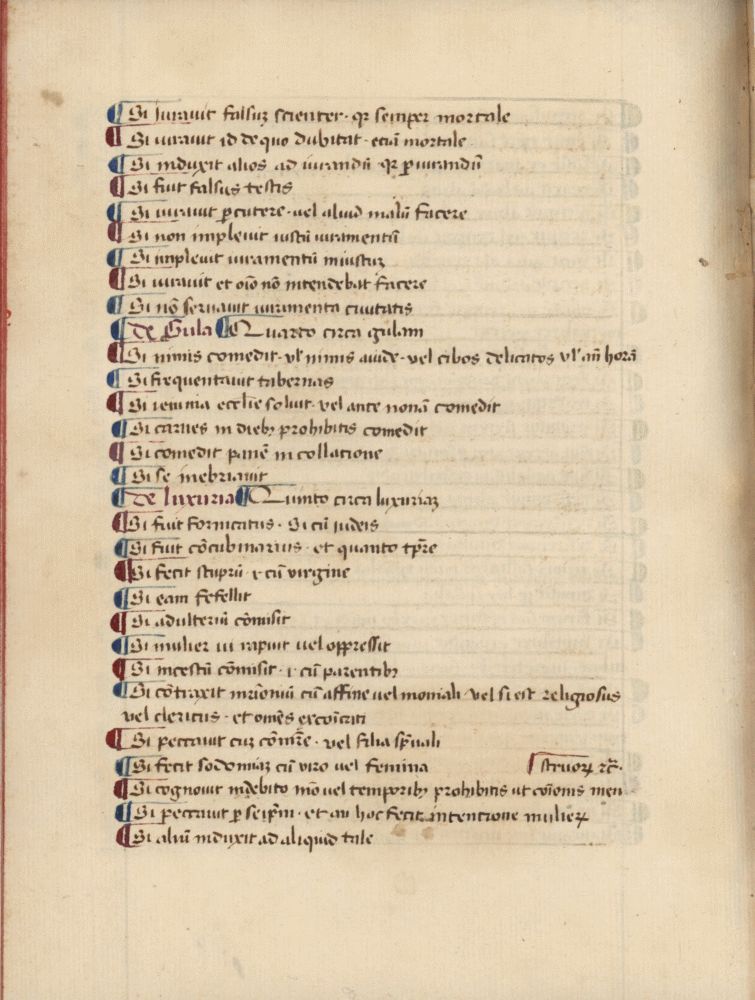 ¶ Si Iurauit falsuȝ scienter · qꝛ semper mortale
¶ Si iurauit id de quo dubitat · etiā mortale
¶ Si induxit alios ad iurandū qꝛ ꝑiurandū
¶ Si fuit falsus testis
¶ Si iurauit ꝑcutere · uel aliud malū facere
¶ Si non impleuit iustū iuramentū
¶ Si impleuit iuramentū iniustuȝ
¶ Si iurauit et oīo nō intendebat facere
¶ Si nō seruauit iuramenta ciuitatis
¶ De Gula ¶ Quarto circa gulam
¶ Si nimis comedit · vl' nimis auide · vel cibos delicatos vl' añ horā
¶ Si frequentauit tabernas
¶ Si ieiunia ecclīe soluit · vel ante nonā comedit
¶ Si carnes in dieb᷒ prohibitis comedit
¶ Si comedit panē in collatione
¶ Si se inebriauit
¶ De luxuria ¶ Quinto circa luxuriaȝ
¶ Si fuit fornicatus · Si cū iudeis
¶ Si fuit cōcubinarius · et quanto tp̄re
¶ Si fecit stuprū · i cū virgine
¶ Si eam fefellit
¶ Si adulteriū cōmisit
¶ Si mulier ui rapuit uel oppressit
¶ Si incestū cōmisit · i cū parentibȝ
¶ Si cōtraxit mr̄imoniū cū affine uel moniali · vel si est religiosus
vel clericus · et omēs excōicati
¶ Si peccauit cuȝ cōmr̄e · vel filia sp̄uali
¶ Si fecit sodomiaȝ cū viro uel femina ⌈struoꝝ ⁊c̄·
¶ Si cognouit indebito mō uel temporibȝ prohibitis ut cōionis men
¶ Si peccauit ꝑ seip̄m · et an hoc fecit intentione mulieꝝ
¶ Si aliū induxit ad aliquid tale